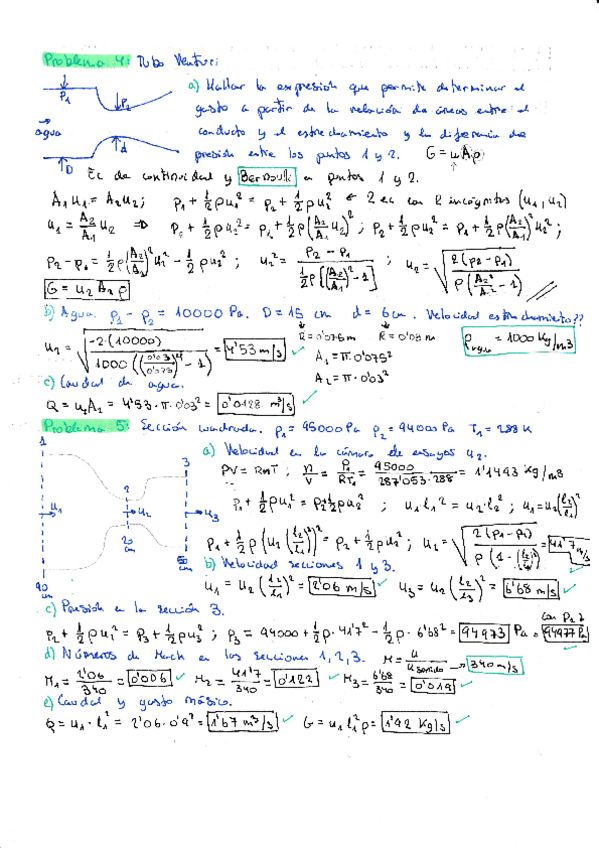 Problema 4: Tubo Venturi
a) Hallar la expresión que permite determinar el
P₁ P₂ gasto a partir de la relación de áreas entre el
agua conducto y el estrechamiento y la diferencia de
D d presión entre los puntos 1 y 2. G = uAρ
Ec de continuidad y Bernoulli en puntos 1 y 2.
A₁u₁ = A₂u₂; p₁ + ½ρu₁² = p₂ + ½ρu₂² ← 2 ec con 2 incógnitas (u₁, u₂)
u₁ = A₂/A₁ u₂ ⇒ p₁ + ½ρu₁² = p₁ + ½ρ(A₂/A₁ u₂)²; p₂ + ½ρu₂² = p₁ + ½ρ(A₂/A₁)²u₂²;
p₂ - p₁ = ½ρ(A₂/A₁)²u₂² - ½ρu₂²; u₂² = (p₂ - p₁)/(½ρ[(A₂/A₁)² - 1]); u₂ = √(2(p₂ - p₁)/(ρ(A₂²/A₁² - 1)))
G = u₂A₂ρ
b) Agua. p₁ - p₂ = 10000 Pa. D = 15 cm d = 6 cm. Velocidad estrechamiento??
R = 0'075 m R = 0'03 m ρagua = 1000 kg/m3
u₂ = √(-2·(10000)/(1000((0'03/0'075)⁴ - 1))) = 4'53 m/s ✓ A₁ = π·0'075²
A₂ = π·0'03²
c) Caudal de agua.
Q = u₂A₂ = 4'53·π·0'03² = 0'0128 m³/s ✓
Problema 5: Sección cuadrada. p₁ = 95000 Pa p₂ = 94000 Pa T₁ = 288 K
a) Velocidad en la cámara de ensayos u₂.
PV = RnT; n/V = P₁/RT₁ = 95000/(287'053·288) = 1'1493 kg/m3
p₁ + ½ρu₁² = p₂ + ½ρu₂²; u₁·l₁² = u₂·l₂²; u₁ = u₂(l₂/l₁)²
p₁ + ½ρ(u₂(l₂/l₁)²)² = p₂ + ½ρu₂²; u₂ = √(2(p₁ - p₂)/(ρ(1 - (l₂/l₁)⁴))) = 41'7 m/s
1 2 3
u₁ u₂ u₃
90 cm 20 cm 50 cm
b) Velocidad secciones 1 y 3.
u₁ = u₂(l₂/l₁)² = 2'06 m/s ✓ u₃ = u₂(l₂/l₃)² = 6'68 m/s ✓
c) Presión en la sección 3.
p₂ + ½ρu₂² = p₃ + ½ρu₃²; p₃ = 94000 + ½ρ·41'7² - ½ρ·6'68² = 94973 Pa
94977 Pa
d) Números de Mach en las secciones 1, 2, 3. M = u/u sonido → 340 m/s
M₁ = 2'06/340 = 0'006 ✓ M₂ = 41'7/340 = 0'122 ✓ M₃ = 6'68/340 = 0'019 ✓
e) Caudal y gasto másico.
Q = u₁·l₁² = 2'06·0'9² = 1'67 m³/s ✓ G = u₁l₁²ρ = 1'92 kg/s ✓